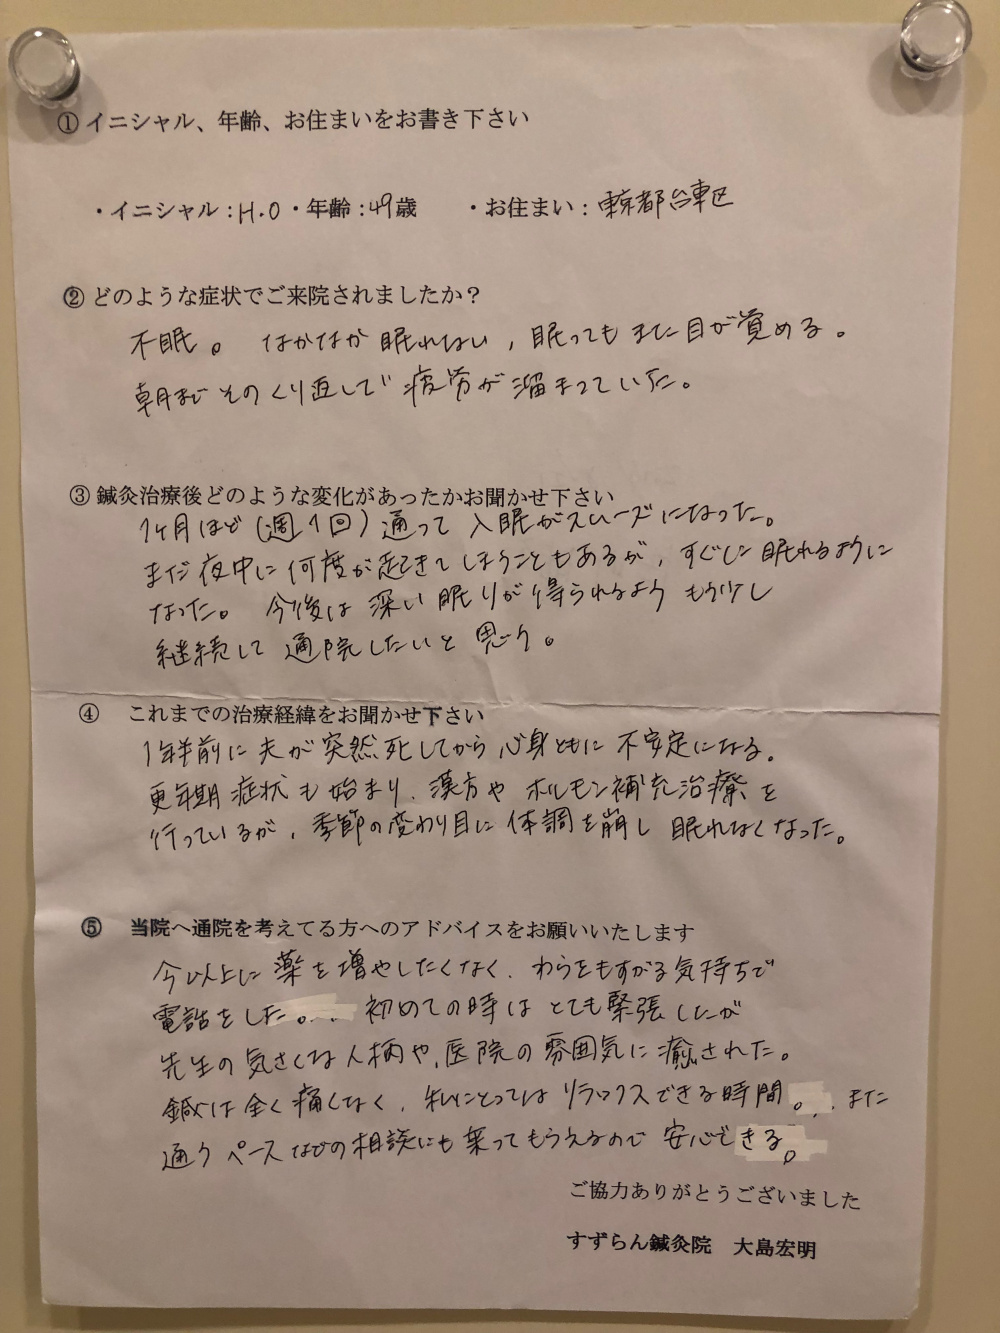 ① イニシャル、年齢、お住まいをお書き下さい
・イニシャル：H.O ・年齢：49歳 ・お住まい：東京都台東区
② どのような症状でご来院されましたか？
不眠。なかなか眠れない，眠ってもまた目が覚める。
朝までそのくり返しで疲労が溜まっていた。
③ 鍼灸治療後どのような変化があったかお聞かせ下さい
1ヶ月ほど(週1回)通って入眠がスムーズになった。
まだ夜中に何度か起きてしまうこともあるが，すぐに眠れるように
なった。今後は深い眠りが得られるようもう少し
継続して通院したいと思う。
④ これまでの治療経緯をお聞かせ下さい
1年半前に夫が突然死してから心身ともに不安定になる。
更年期症状も始まり、漢方やホルモン補充治療を
行っているが，季節の変わり目に体調を崩し眠れなくなった。
⑤ 当院へ通院を考えてる方へのアドバイスをお願いいたします
今以上に薬を増やしたくなく、わらをもすがる気持ちで
電話をした。初めての時はとても緊張したが
先生の気さくな人柄や、医院の雰囲気に癒された。
鍼は全く痛くなく、私にとってはリラックスできる時間。また
通うペースなどの相談にも乗ってもらえるので安心できる。
ご協力ありがとうございました
すずらん鍼灸院 大島宏明